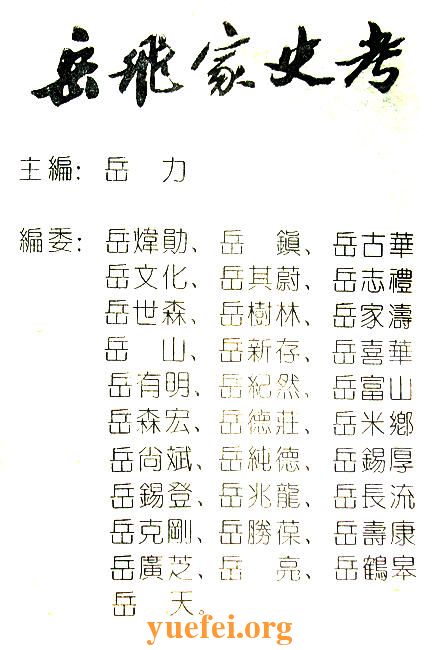 岳飛家史考
主編：岳　力
編委：岳煒勛、岳　鎮、岳古華
岳文化、岳其蔚、岳志禮
岳世森、岳樹林、岳家濤
岳　山、岳新存、岳喜華
岳有明、岳紀然、岳富山
岳森宏、岳德莊、岳米鄉
岳尚斌、岳純德、岳錫厚
岳錫登、岳兆龍、岳長流
岳克剛、岳勝葆、岳壽康
岳廣芝、岳　亮、岳鶴皋
岳　天。
yuefei.org